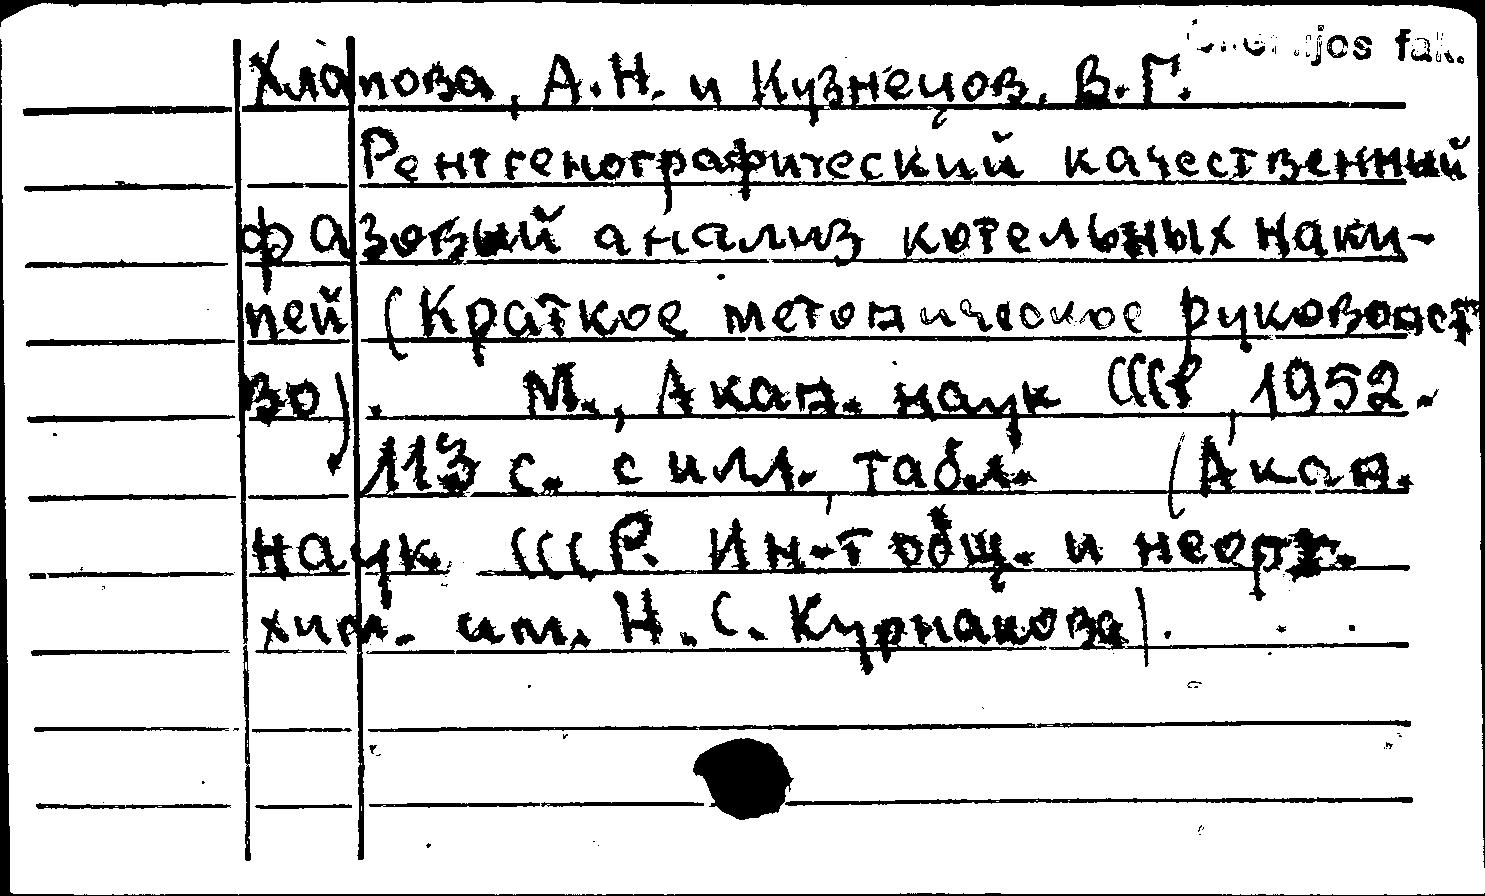 fak.
Хлапова, А.Н. и Кузнецов, В.Г.
Рентгенографический качественный
фазовый анализ котельных наки-
пей (Краткое методическое руководст
во). М., Акад. наук СССР, 1952.
113 с. с илл., табл. (Акад.
наук СССР. Ин-т общ. и неорг.
хим. им. Н.С. Курнакова).